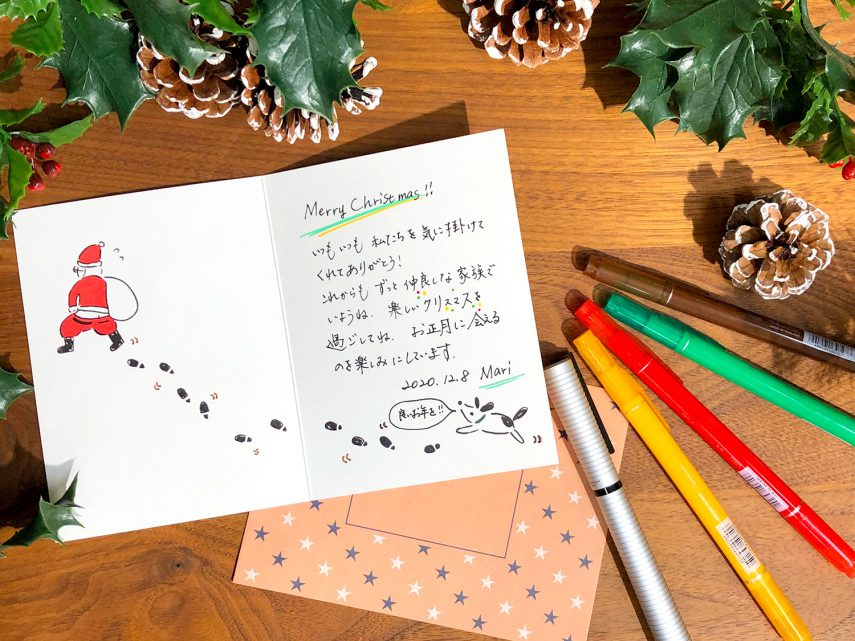 Merry Christmas!!
いつもいつも 私たちを気に掛けて
くれてありがとう!
これからも ずっと仲良しな家族で
いようね. 楽しいクリスマスを
過ごしてね. お正月に会える
のを楽しみにしています.
2020.12.8 Mari
良いお年を!!